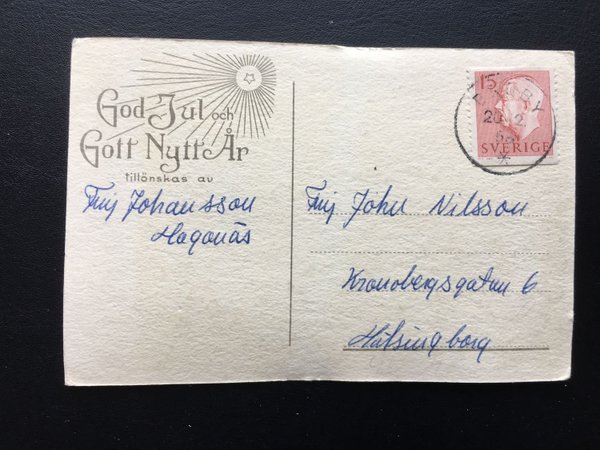 God Jul och
Gott Nytt År
tillönskas av
Fmj Johansson
Haganäs
15
SVERIGE
20 12
Fmj John Nilsson
Kronobergsgatan 6
Hälsingborg